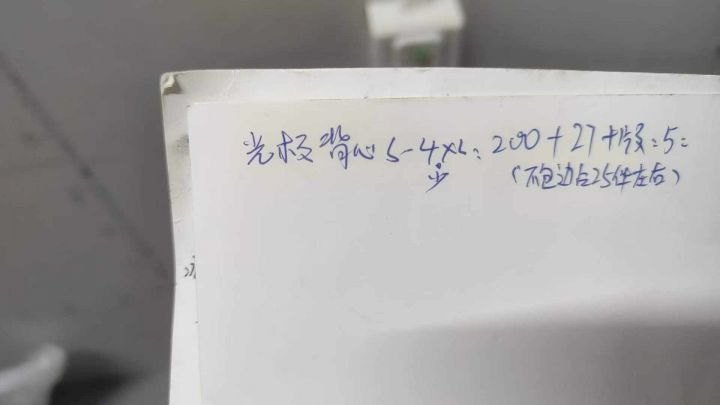 光板背心S-4XL:200+27+服:5:
少
(不包边占25件左右)